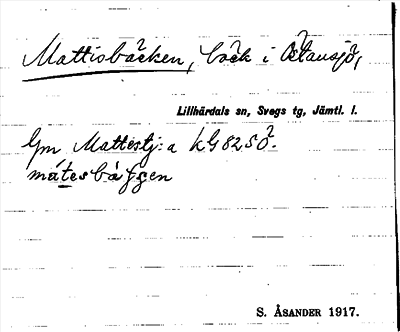 Mattisbäcken, bäck i Östansjö,
Lillhärdals sn, Svegs tg, Jämtl. l.
Gm Mattestj:a kG 8250.
mátesbáƷƷen
S. ÅSANDER 1917.